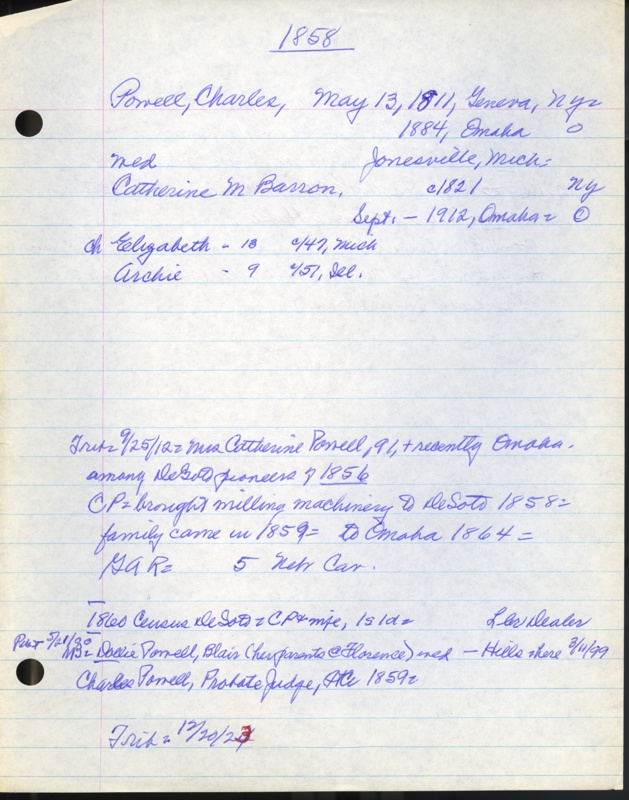 1858
Powell, Charles, May 13, 1811, Geneva, Ny=
1884, Omaha O
med Jonesville, Mich=
Catherine M Barron. c/1821 Ny
Sept. - 1912, Omaha= ©
ch Elizabeth - 13 c/47, Mich
Archie - 9 c/51, Ill.
Trib= 9/25/12= Mrs Catherine Powell, 91, + recently Omaha.
among DeSoto pioneers of 1856
CP= brought milling machinery to DeSoto 1858=
family came in 1859= to Omaha 1864=
GAR= 5 Neb Cav.
1860 Census DeSoto= CP & wife, 1s 1d= Lbr Dealer
5/21/90
Dollie Powell, Blair (her parents @ Florence) med - Hills there 3/11/99
Charles Powell, Probate Judge, 1859=
Trib= 12/20/23